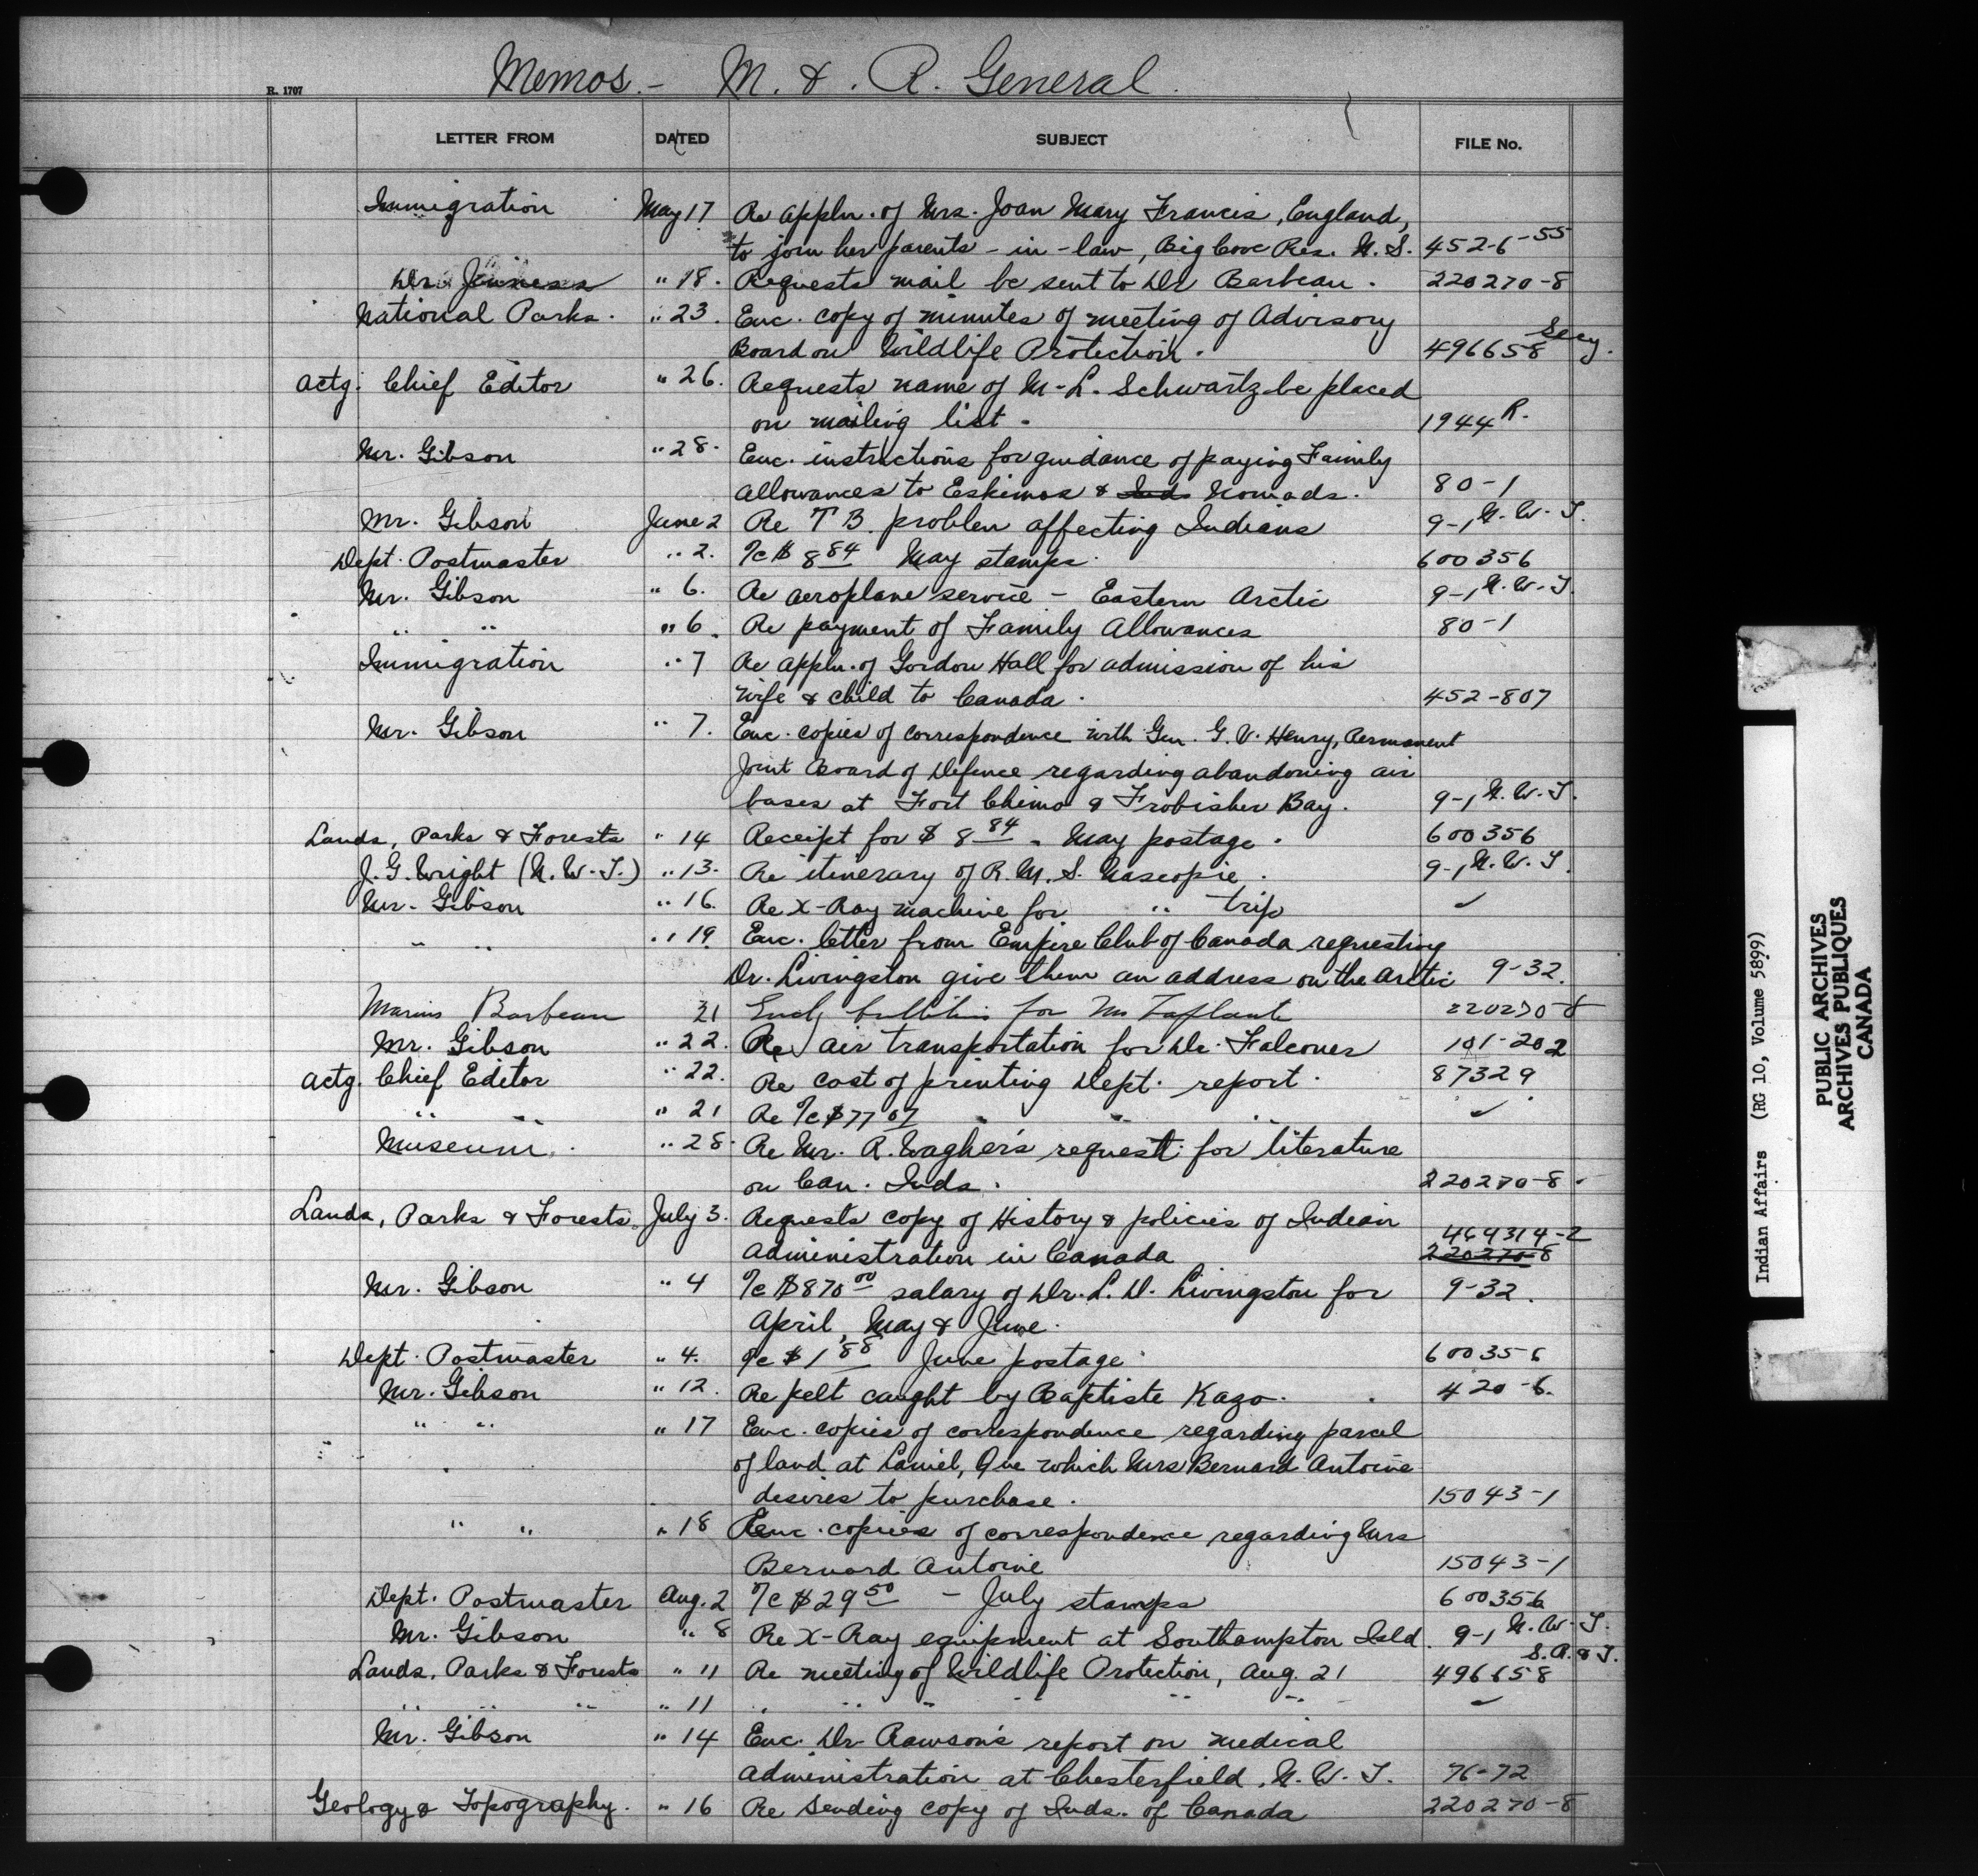 Memos. - M. & . R. General.
R. 1707
LETTER FROM DATED SUBJECT FILE No.
Immigration May 17 Re appln. of Mrs. Joan Mary Francis, England,
to join her parents-in-law, Big Cove Res. N.S. 452-6-55
Dr. Jenness " 18. Requests mail be sent to Dr Barbeau. 220270-8
National Parks. " 23. Enc. copy of minutes of meeting of Advisory
Board on Wildlife Protection. 496658 Secy.
Actg. Chief Editor " 26. Requests name of M-L. Schwartz be placed
on mailing list. 1944 R.
Mr. Gibson " 28. Enc. instructions for guidance of paying Family
Allowances to Eskimos & Inds Nomads. 80-1
Mr. Gibson June 2 Re T B. problem affecting Indians 9-1 N.W.T.
Dept. Postmaster " 2. %c $ 8 84 May stamps. 600356
Mr. Gibson " 6. Re aeroplane service - Eastern Arctic 9-1 N.W.T.
" " " 6. Re payment of Family Allowances 80-1
Immigration " 7 Re appln. of Gordon Hall for admission of his
wife & child to Canada. 452-807
Mr. Gibson " 7. Enc. copies of correspondence with Gen. G.V. Henry, Permanent
Joint Board of Defence regarding abandoning air
bases at Fort Chimo & Frobisher Bay. 9-1 N.W.T.
Lands, Parks & Forests " 14 Receipt for $ 8 84 - May postage. 600356
J.G. Wright (N.W.T.) " 13. Re itinerary of R.M.S. Nascopie. 9-1 N.W.T.
Mr. Gibson " 16. Re X-Ray machine for " trip ✓
" " " 19 Enc. letter from Empire Club of Canada requesting
Dr. Livingston give them an address on the Arctic 9-32.
Marius Barbeau 21 Encl. bulletin for Mr Laplante 220270-8
Mr. Gibson " 22. Re air transportation for Dr. Falconer 101-202
Actg. Chief Editor " 22. Re cost of printing Dept. report. 87329
" " " 21 Re %c $77 07 " " . ✓
Museum. " 28. Re Mr. R. Wagher's request for literature
on Can. Inds. 220270-8.
Lands, Parks & Forests. July 3. Requests copy of History & policies of Indian 464314-2
Administration in Canada 220270-8
Mr. Gibson " 4 %c $870 00 salary of Dr. L. D. Livingston for 9-32.
April, May & June.
Dept. Postmaster " 4. %c $ 1 88 June postage 600356
Mr. Gibson " 12. Re pelt caught by Baptiste Kazo. 420-6.
" " " 17 Enc. copies of correspondence regarding parcel
of land at Laniel, Que which Mrs Bernard Antoine
desires to purchase. 15043-1
" " " 18 Enc. copies of correspondence regarding Mrs
Bernard Antoine 15043-1
Dept. Postmaster Aug. 2 %c $29 50 - July stamps 600356
Mr. Gibson " 8 Re X-Ray equipment at Southampton Isld. 9-1 N.W.T.
Lands, Parks & Forests " 11 Re meeting of Wildlife Protection, Aug. 21 496658 S.R.&T.
" " " " 11 " " " " " " ✓
Mr. Gibson " 14 Enc. Dr Rawson's report on medical
administration at Chesterfield, N.W.T. 76-72
Geology & Topography. " 16 Re sending copy of Inds. of Canada 220270-8
Indian Affairs (RG 10, Volume 5899)
PUBLIC ARCHIVES
ARCHIVES PUBLIQUES
CANADA